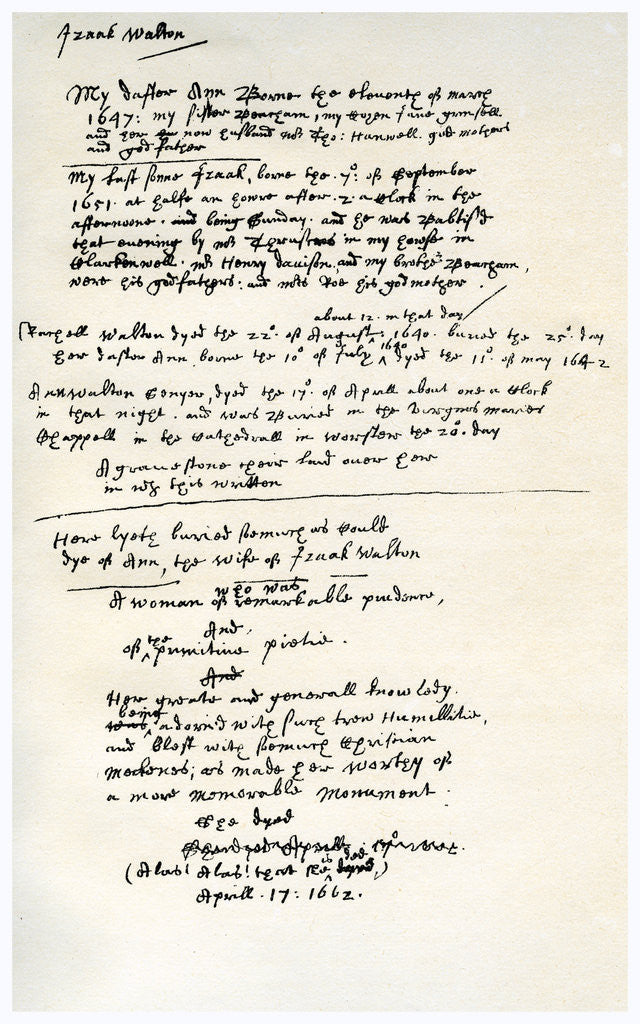 Izaak Walton
My dafter Ann Borne the eleventh of march
1647: my sister Beacham, my Cosen Jane grinsell
and her now husband mr Tho: Hanwell. god mothers
and god father
My last sonne Izaak, borne the .7o: of September
1651. at halfe an howre after. 2 a clock in the
afternoone. and being Sunday. and he was Baptis'd
that evening by mr Thruscros in my howse in
Clarkenwell. mr Henry Davison, and my brother Beacham,
were his godfathers. and mrs Roe his godmother.
about 12. in that day
Rachell Walton dyed the 22o. of August. 1640. buried the 25o. day
her dafter Ann. borne the 10o of July 1640 dyed the 11o. of may 1642
Ann Walton Senyer, dyed the 17o. of Aprill about one a Clock
in that night. and was Buried in the Virgins maries
Chappell in the Cathedrall in Worster the 20o. day
A gravestone their laid over her
in wh this written
Here lyeth buried soemuch as could
dye of Ann, the wife of Izaak Walton
who was
A woman of remarkable prudence,
And,
of the primitive pietie.
And
Her greate and generall knowledg.
being
was adorned with such trew Humillitie,
and blest with soemuch Christian
meekenes; as made her worthy of
a more memorable Monument.
She dyed
(Alas! Alas! that she is ded)
Aprill . 17: 1662.